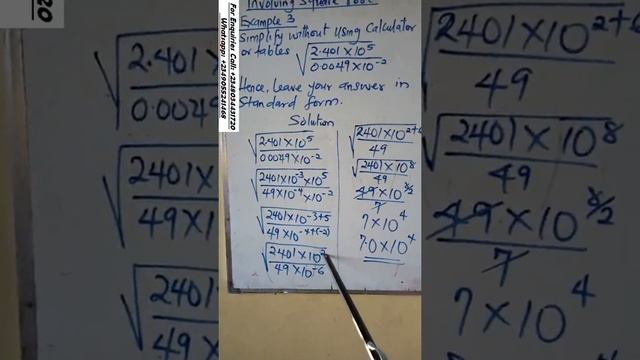 Involving Square Root
Example 3
Simplify without using Calculator
or tables √(2.401×10⁵ / 0.0049×10⁻²)
Hence, leave your answer in
Standard form.
Solution
√(2.401×10⁵ / 0.0049×10⁻²)
√(2401×10⁻³×10⁵ / 49×10⁻⁴×10⁻²)
√(2401×10⁻³⁺⁵ / 49×10⁻⁴⁺⁽⁻²⁾)
√(2401×10² / 49×10⁻⁶)
√(2401×10²⁺⁶ / 49)
√(2401×10⁸ / 49)
49×10^(8/2) / 7
7×10⁴
7.0×10⁴
For Enquiries Call: +2349034431720
Whatsapp: +2349055241468
√(2.401× / 0.0049
√(2401× / 49×1
√(2401× / 49×
√(2401 / 49×
2401×10²⁺ / 49
√(2401×10⁸ / 49)
49×10^(8/2) / 7
7×10⁴
20